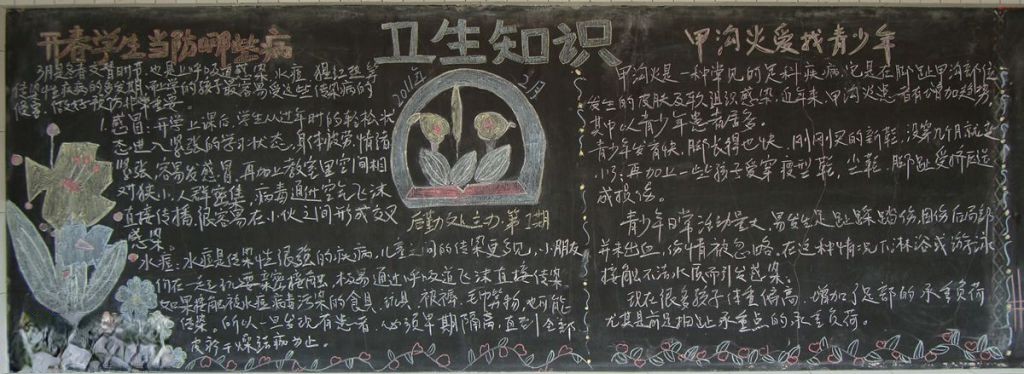 开春学生当防哪些病
3月是春夏交替时节,也是上呼吸道感染、水痘、猩红热等
传染性疾病的高发期,而上学的孩子最容易受这些传染病的
侵害,
1.感冒:开学上课后,学生从过年时的轻松状
态进入紧张的学习状态,身体疲劳,情绪
紧张,容易发感冒,再加上教室里空间相
对狭小,人群密集,病毒通过空气飞沫
直接传播,很容易在小伙之间形成交叉
感染。
水痘:水痘是传染性很强的疾病,儿童之间的传染更多见,小朋友
们在一起玩耍亲密接触,松易通过呼吸道飞沫直接传染,
如果接触被水痘病毒污染的食具、玩具、被褥、毛巾等物,也可能
传染。所以一旦发现有患者,必须早期隔离,直到全部
皮疹干燥结痂为止。
卫生知识
2011年
2月
后勤处主办 第1期
甲沟炎爱找青少年
甲沟炎是一种常见的足科疾病,它是在脚趾甲沟部位
发生的皮肤及软组织感染,近年来,甲沟炎患者有增加趋势,
其中以青少年患者居多。
青少年发育快,脚长得也快,刚刚买的新鞋,没穿几个月就
小了;再加上一些孩子爱穿瘦型鞋、尖鞋,脚趾受挤压造
成损伤。
青少年日常活动量大,易发生足趾踩踏伤,因伤后局部
并未出血,伤情被忽略,在这种情况下淋浴或游泳
接触不洁水质而引发感染。
现在很多孩子体重偏高,增加了足部的承重负荷
尤其是前足拇趾承重点的承重负荷。